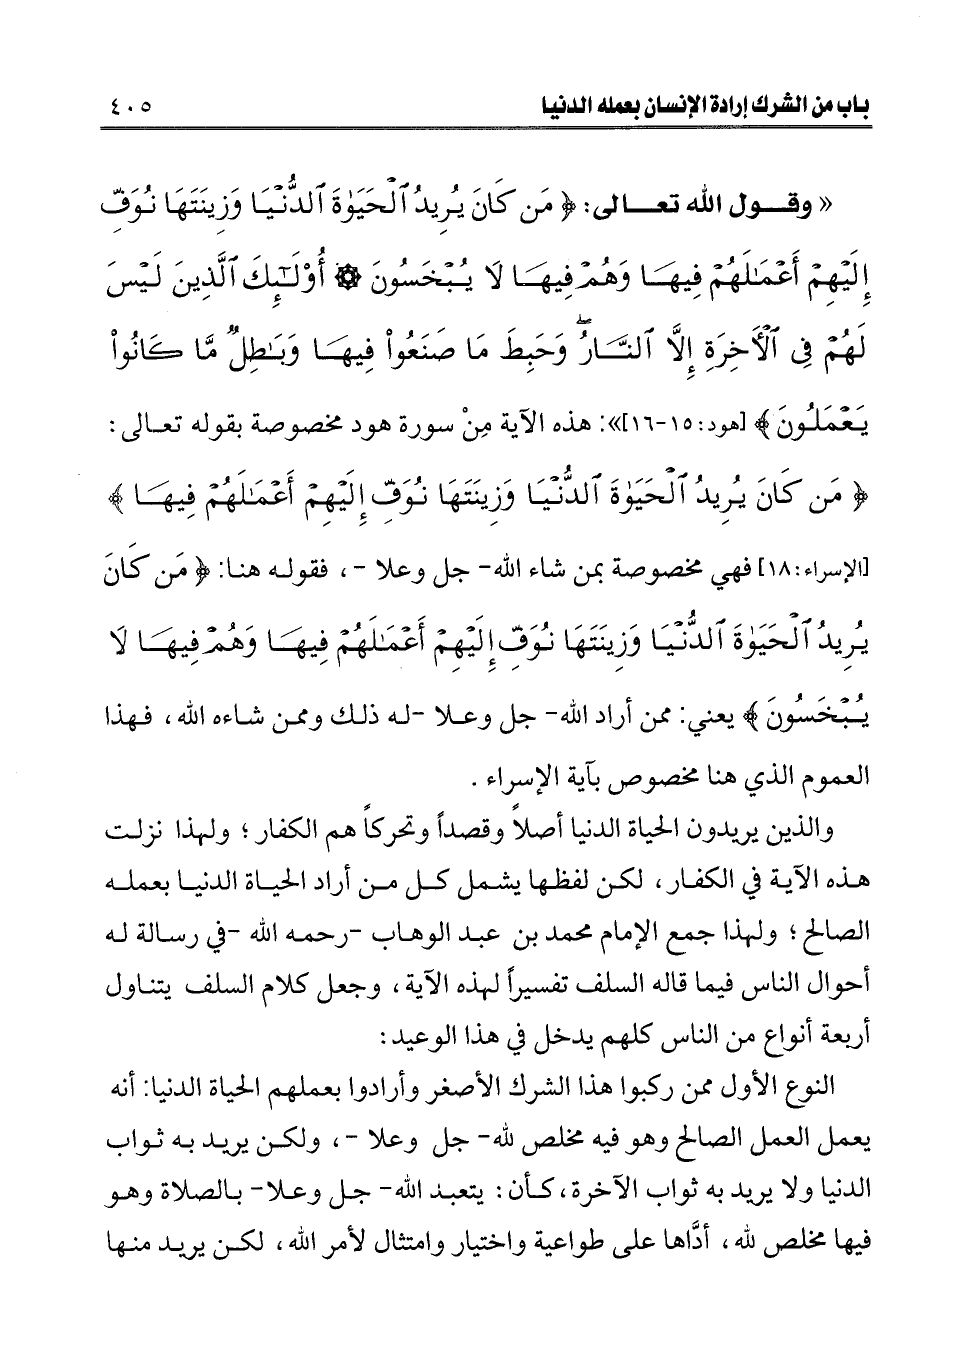 باب من الشرك إرادة الإنسان بعمله الدنيا ٤٠٥
« وقـــول الله تعـــالى: ﴿ مَن كَانَ يُرِيدُ ٱلْحَيَوٰةَ ٱلدُّنْيَا وَزِينَتَهَا نُوَفِّ
إِلَيْهِمْ أَعْمَٰلَهُمْ فِيهَا وَهُمْ فِيهَا لَا يُبْخَسُونَ ۞ أُوْلَٰٓئِكَ ٱلَّذِينَ لَيْسَ
لَهُمْ فِي ٱلْأَخِرَةِ إِلَّا ٱلنَّارُ ۖ وَحَبِطَ مَا صَنَعُواْ فِيهَا وَبَٰطِلٌ مَّا كَانُواْ
يَعْمَلُونَ ﴾ [هود: ١٥-١٦]»: هذه الآية مِنْ سورة هود مخصوصة بقوله تعـالى :
﴿ مَن كَانَ يُرِيدُ ٱلْحَيَوٰةَ ٱلدُّنْيَا وَزِينَتَهَا نُوَفِّ إِلَيْهِمْ أَعْمَٰلَهُمْ فِيهَا ﴾
[الإسراء: ١٨] فهي مخصوصة بمن شاء الله- جل وعلا -، فقولـه هنـا: ﴿ مَن كَانَ
يُرِيدُ ٱلْحَيَوٰةَ ٱلدُّنْيَا وَزِينَتَهَا نُوَفِّ إِلَيْهِمْ أَعْمَٰلَهُمْ فِيهَا وَهُمْ فِيهَا لَا
يُبْخَسُونَ ﴾ يعني: ممن أراد الله- جل وعـلا -لـه ذلـك وممن شـاءه الله، فـهذا
العموم الذي هنا مخصوص بآية الإسراء .
والذين يريدون الحياة الدنيا أصلاً وقصداً وتحركاً هم الكفار ؛ ولـهذا نزلـت
هـذه الآيـة في الكفـار، لكـن لفظـها يشـمل كـل مـن أراد الحيـاة الدنيـا بعملـه
الصالح ؛ ولـهذا جمع الإمام محمد بن عبد الوهاب -رحمـه الله -في رسـالة لـه
أحوال الناس فيما قاله السلف تفسيراً لـهذه الآية، وجعل كلام السلف يتناول
أربعة أنواع من الناس كلهم يدخل في هذا الوعيد :
النوع الأول ممن ركبوا هذا الشرك الأصغر وأرادوا بعملهم الحياة الدنيا: أنه
يعمل العمل الصالح وهو فيه مخلص لله- جل وعلا -، ولكـن يريـد به ثـواب
الدنيا ولا يريد به ثواب الآخرة، كـأن : يتعبـد الله- جـل وعـلا- بـالصلاة وهـو
فيها مخلص لله، أدَّاها على طواعية واختيار وامتثال لأمر الله، لكـن يريـد منـها